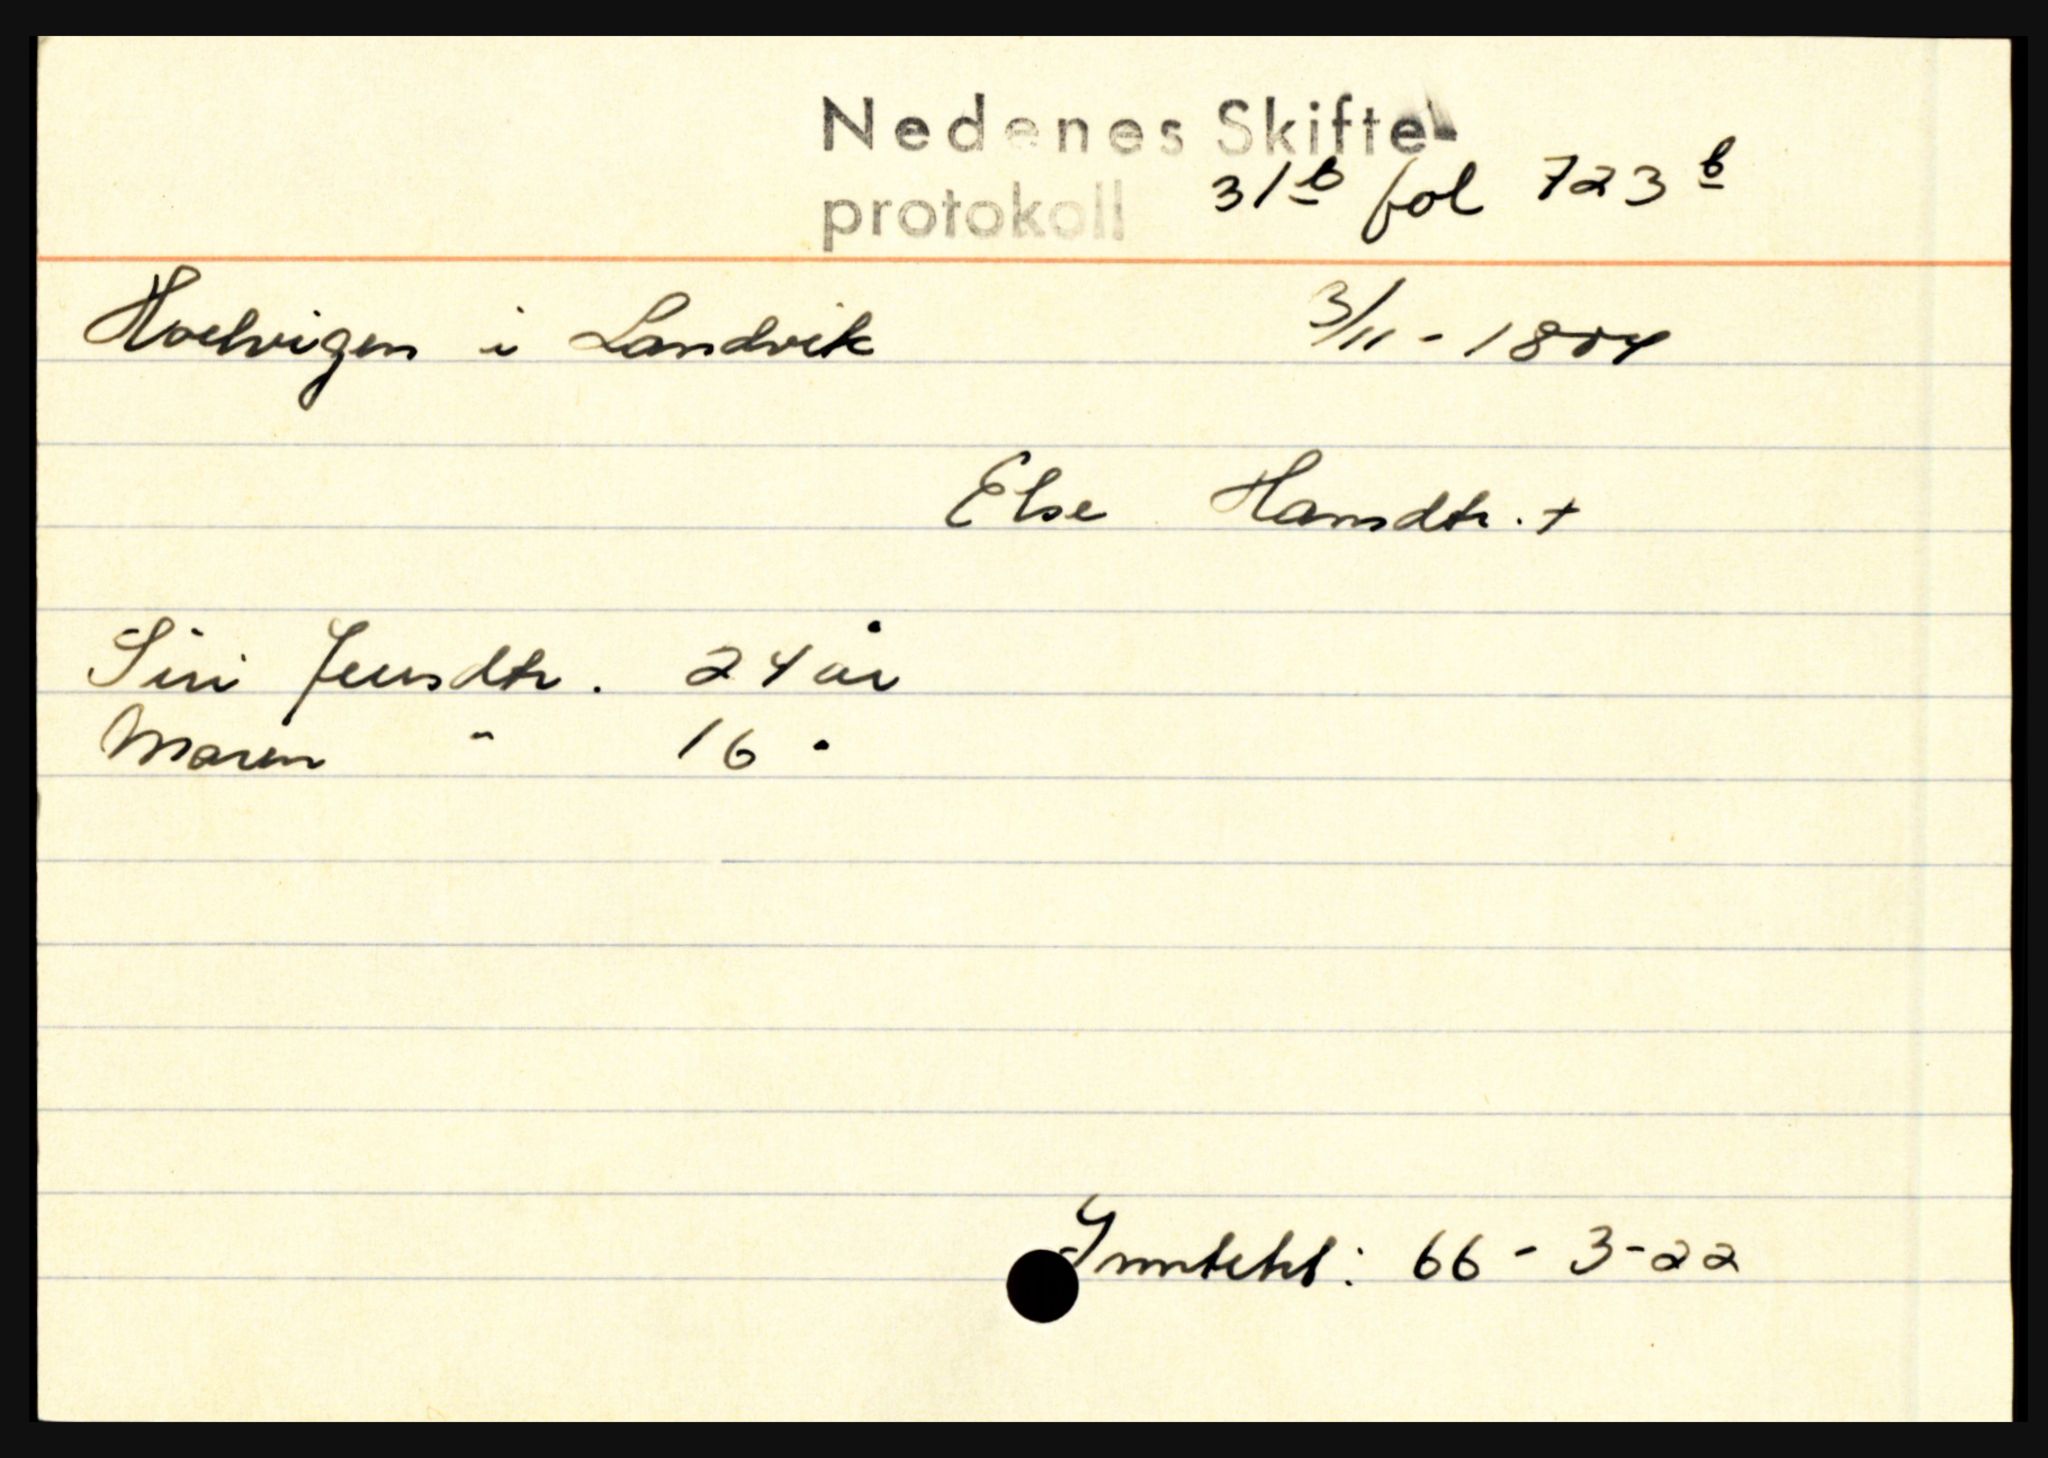 Nedenes Skifte-
protokoll 31b fol 723b
Hoelvigen i Landvik 3/11-1804
Else Hansdtr. +
Siri Jensdtr. 24 år
Maren " 16 "
Inntekt: 66-3-22